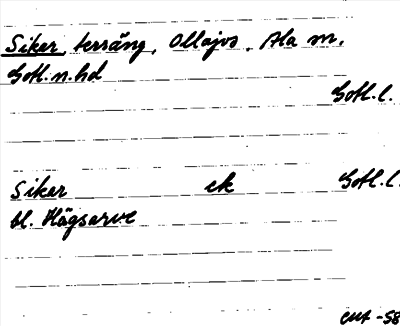 Siker, terräng, Ollajvs, Ala sn.
Gotl. n. hd
Gotl. l.
Siker ek Gotl. l.
bl. Hägsarve
-58